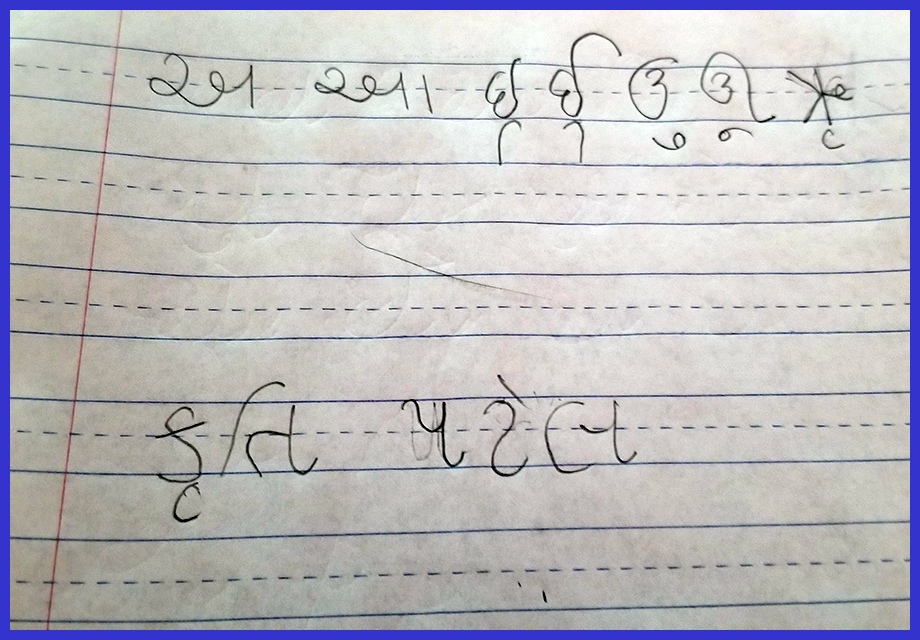 અ આ ઇ ઈ ઉ ઊ ઋ
િ ી ુ ૂ ૃ
કૃતિ પટેલ